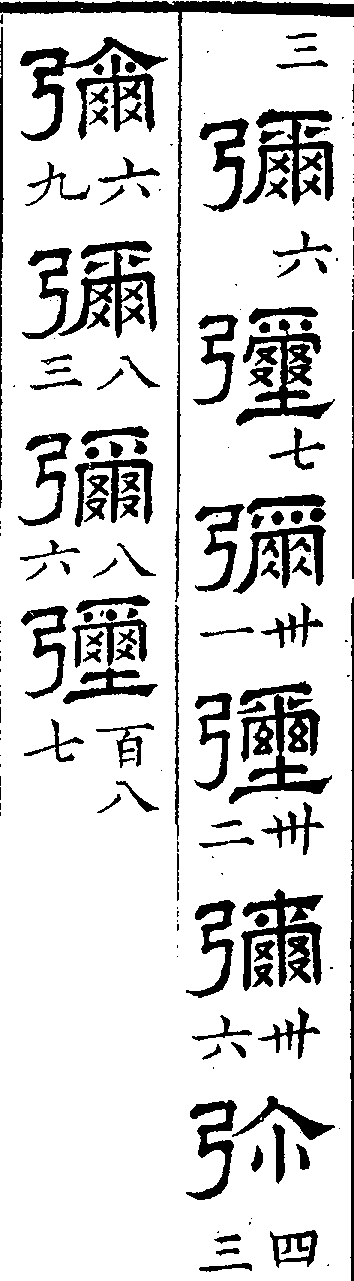 三彌六彌七彌卅一彌卅二彌卅六弥四三
彌六九彌八三彌八六彌百八七